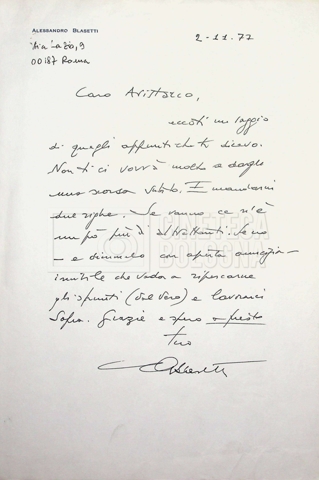 ALESSANDRO BLASETTI
Via Lazio, 9
00187 Roma
2-11.77
Caro Aristarco,
eccoti un saggio
di quegli appunti che ti dicevo.
Non ti ci vorrà molto a dargli
una scorsa subito. E mandarmi
due righe. Se vanno, ce n'è
un pò più di altrettanti. Se no
- e dimmelo con aperta amicizia -
inutile che vada a ripescarne
gli spunti (dal vero) e lavorarci
sopra. Grazie e spero a presto
tuo
Blasetti
CINETECA
BOLOGNA